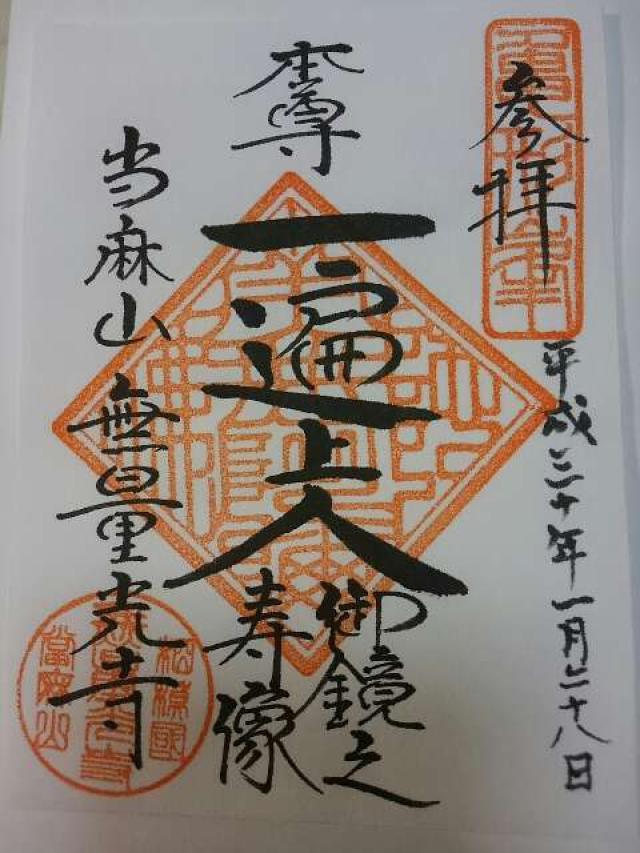 参拝
平成三十年一月二十八日
本尊
一遍上人
御鏡之
寿像
当麻山
無量光寺
相模國
無量光寺
當麻山